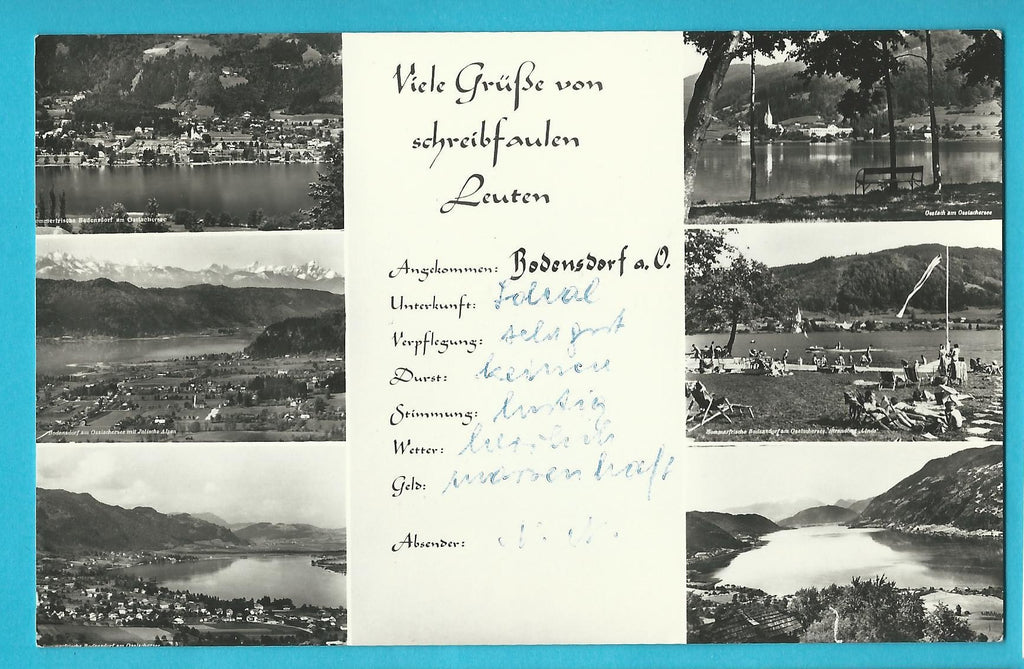 Viele Grüße von
schreibfaulen
Leuten
Angekommen: Bodensdorf a. O.
Unterkunft: Ideal
Verpflegung: sehr gut
Durst: keinen
Stimmung: lustig
Wetter: herrlich
Geld: massenhaft
Absender: N. N.
Sommerfrische Bodensdorf am Ossiachersee
Bodensdorf am Ossiachersee mit Julische Alpen
Sommerfrische Bodensdorf am Ossiachersee
Ossiach am Ossiachersee
Sommerfrische Bodensdorf am Ossiachersee, Strandbad „Linde"